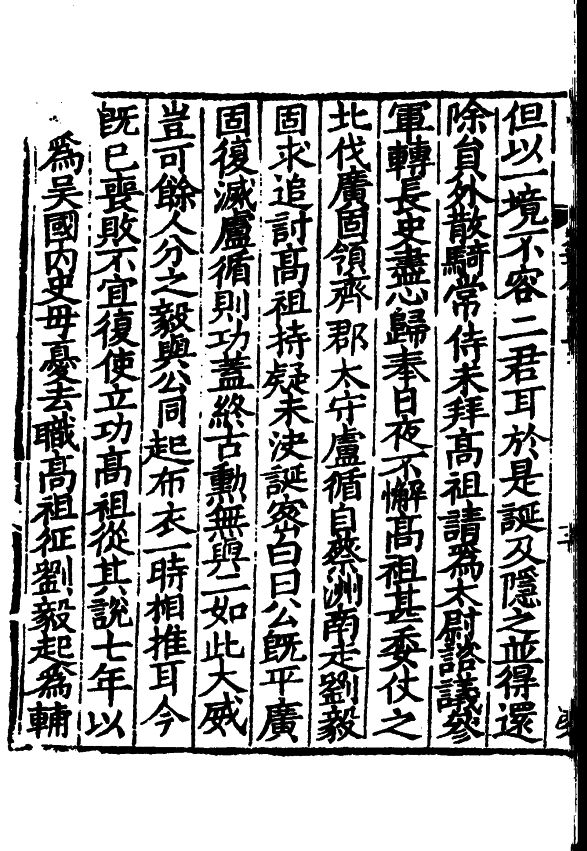 但以一境不容二君耳於是誕及隱之並得還
除員外散騎常侍未拜髙祖請爲太尉諮議參
軍轉長史盡心歸奉日夜不懈髙祖甚委仗之
北伐廣固領齊郡太守盧循自蔡洲南走劉毅
固求追討髙祖持疑未決誕密白曰公旣平廣
固復滅盧循則功蓋終古勳無與二如此大威
豈可餘人分之毅與公同起布衣一時相推耳今
旣已喪敗不宜復使立功髙祖從其說七年以
爲吴國内史毋憂去職髙祖征劉毅起爲輔